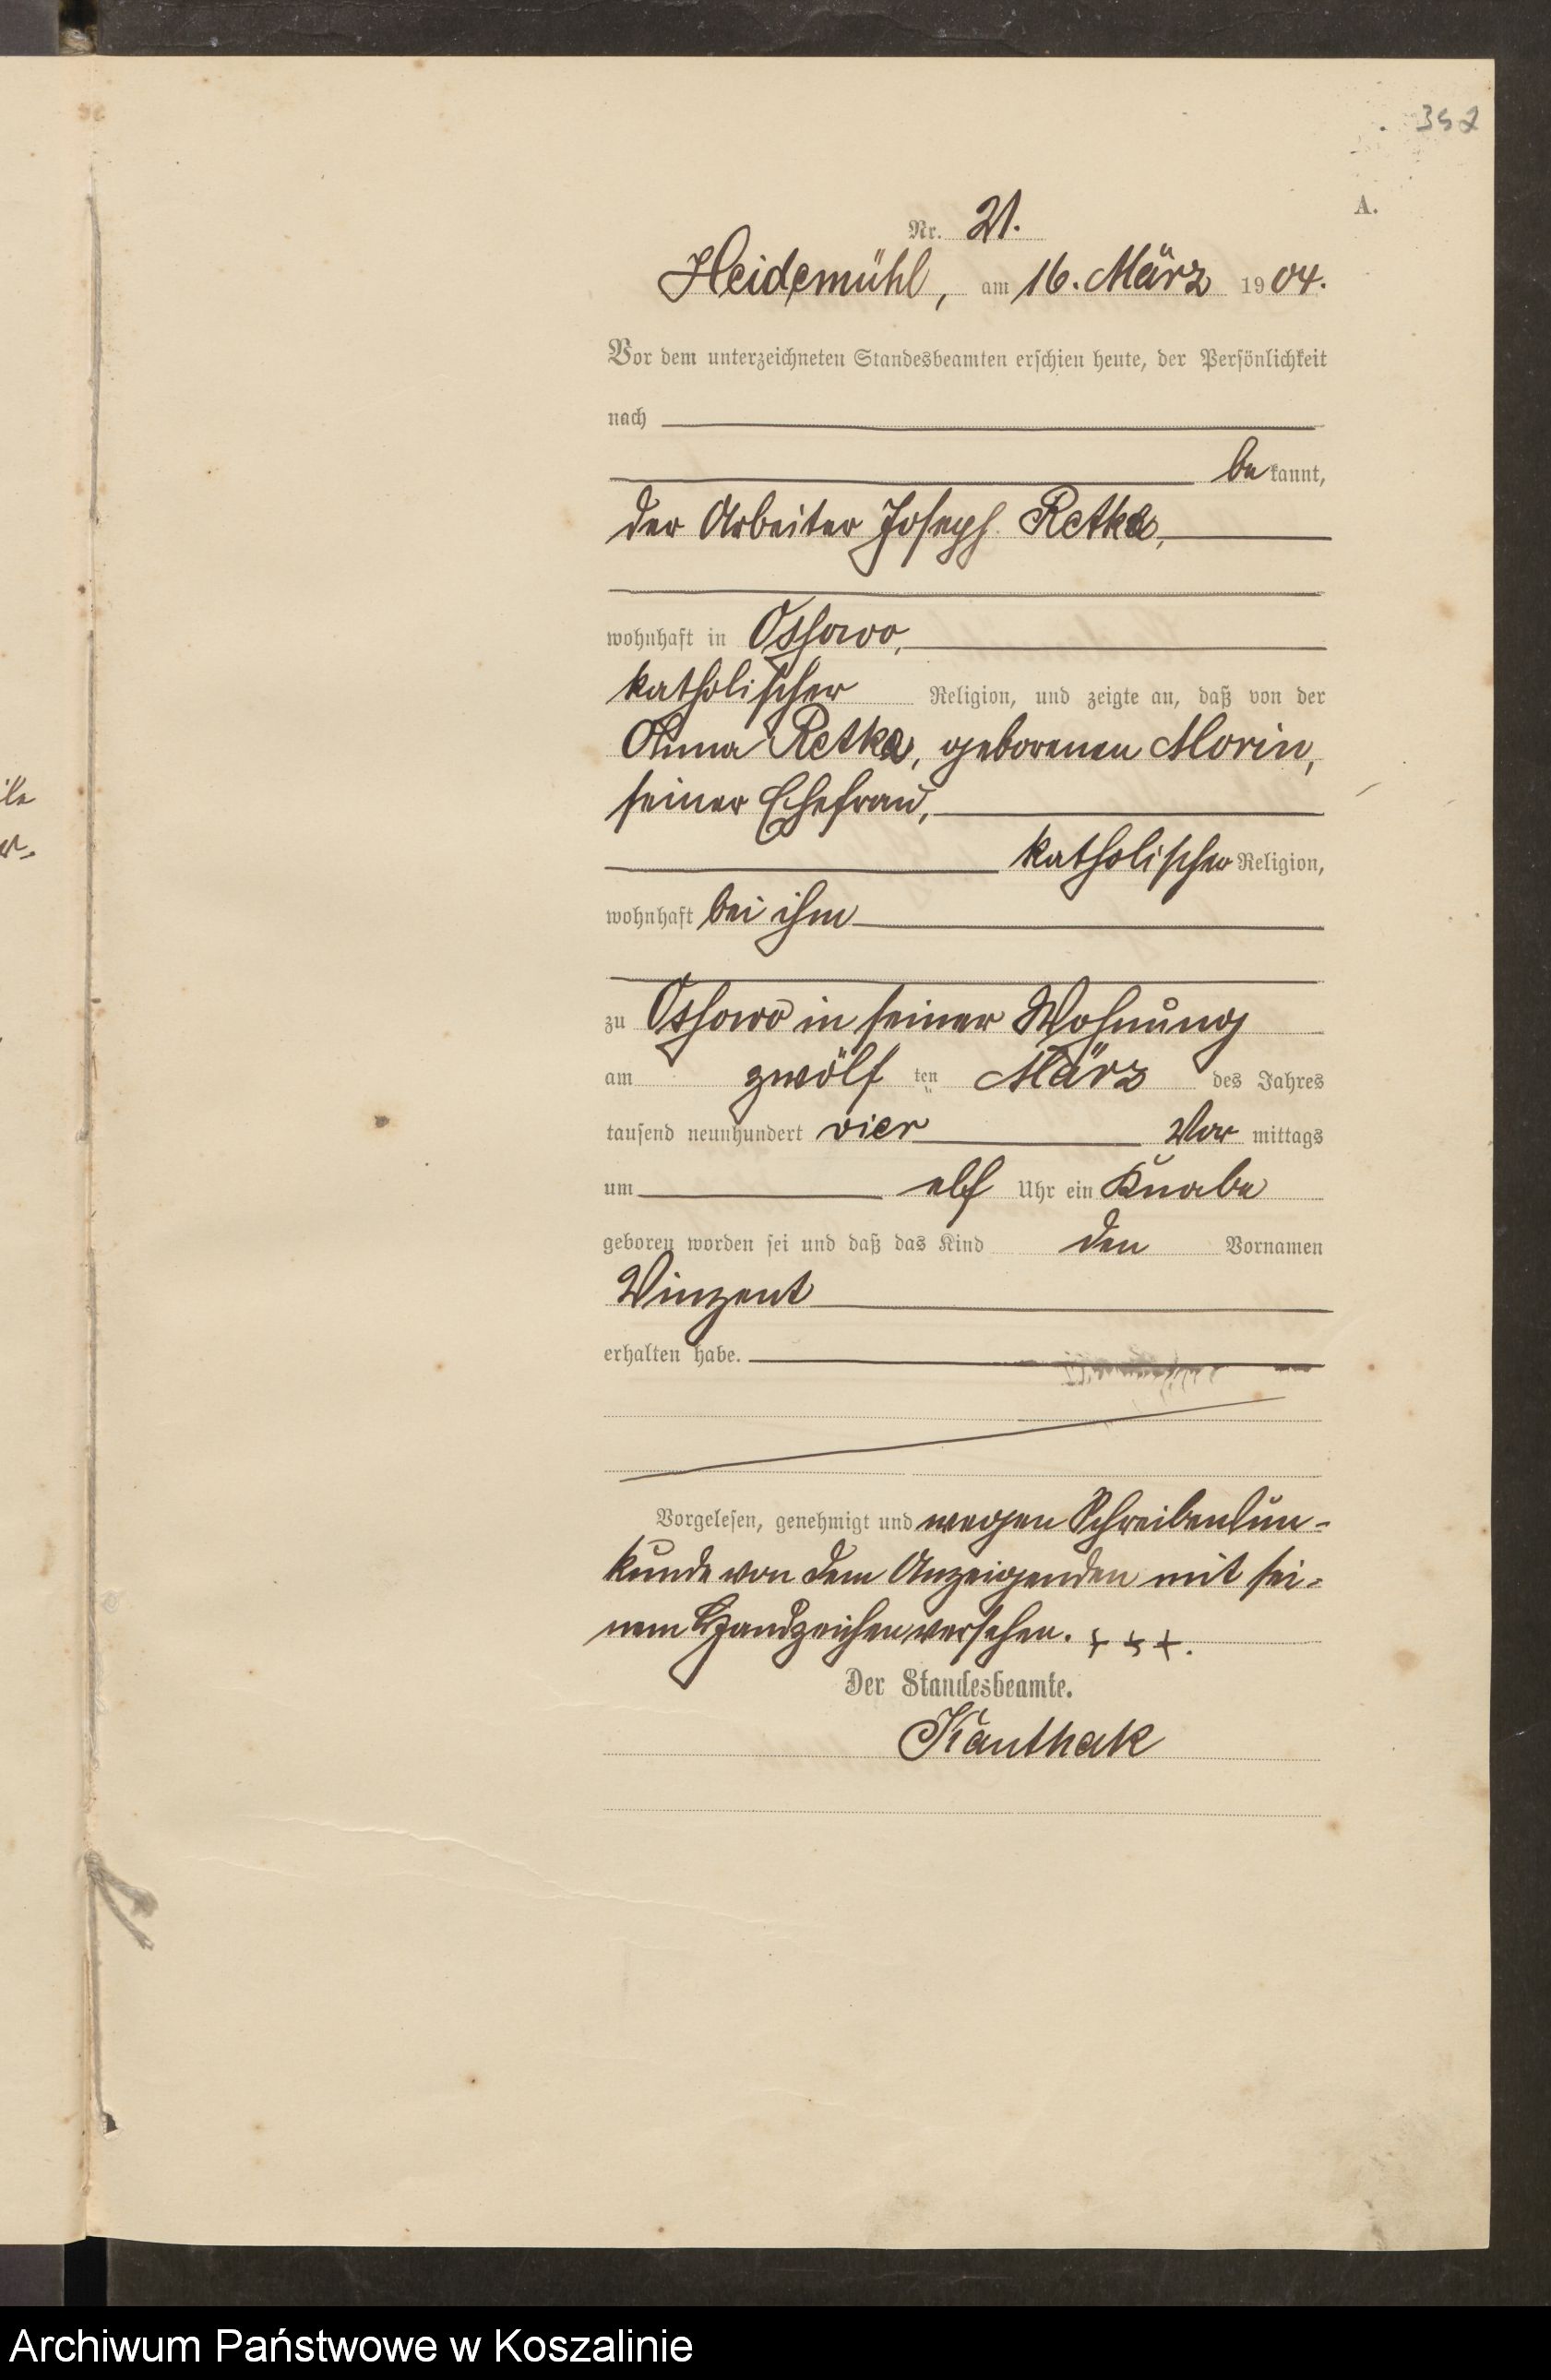 352
A.
Nr. 21.
Heidemühl, am 16. März 1904.
Vor dem unterzeichneten Standesbeamten erschien heute, der Persönlichkeit
nach
bekannt,
der Arbeiter Joseph Retka,
wohnhaft in Ossowo,
katholischer Religion, und zeigte an, daß von der
Anna Retka, geborenen Morin,
seiner Ehefrau,
katholischer Religion,
wohnhaft bei ihm
zu Ossowo in seiner Wohnung
am zwölf ten März des Jahres
tausend neunhundert vier Vor mittags
um elf Uhr ein Knabe
geboren worden sei und daß das Kind den Vornamen
Vinzent
erhalten habe.
Vorgelesen, genehmigt und wegen Schreibensun-
kunde von dem Anzeigenden mit sei-
nem Handzeichen versehen. + + +.
Der Standesbeamte.
Kauthak
Archiwum Państwowe w Koszalinie